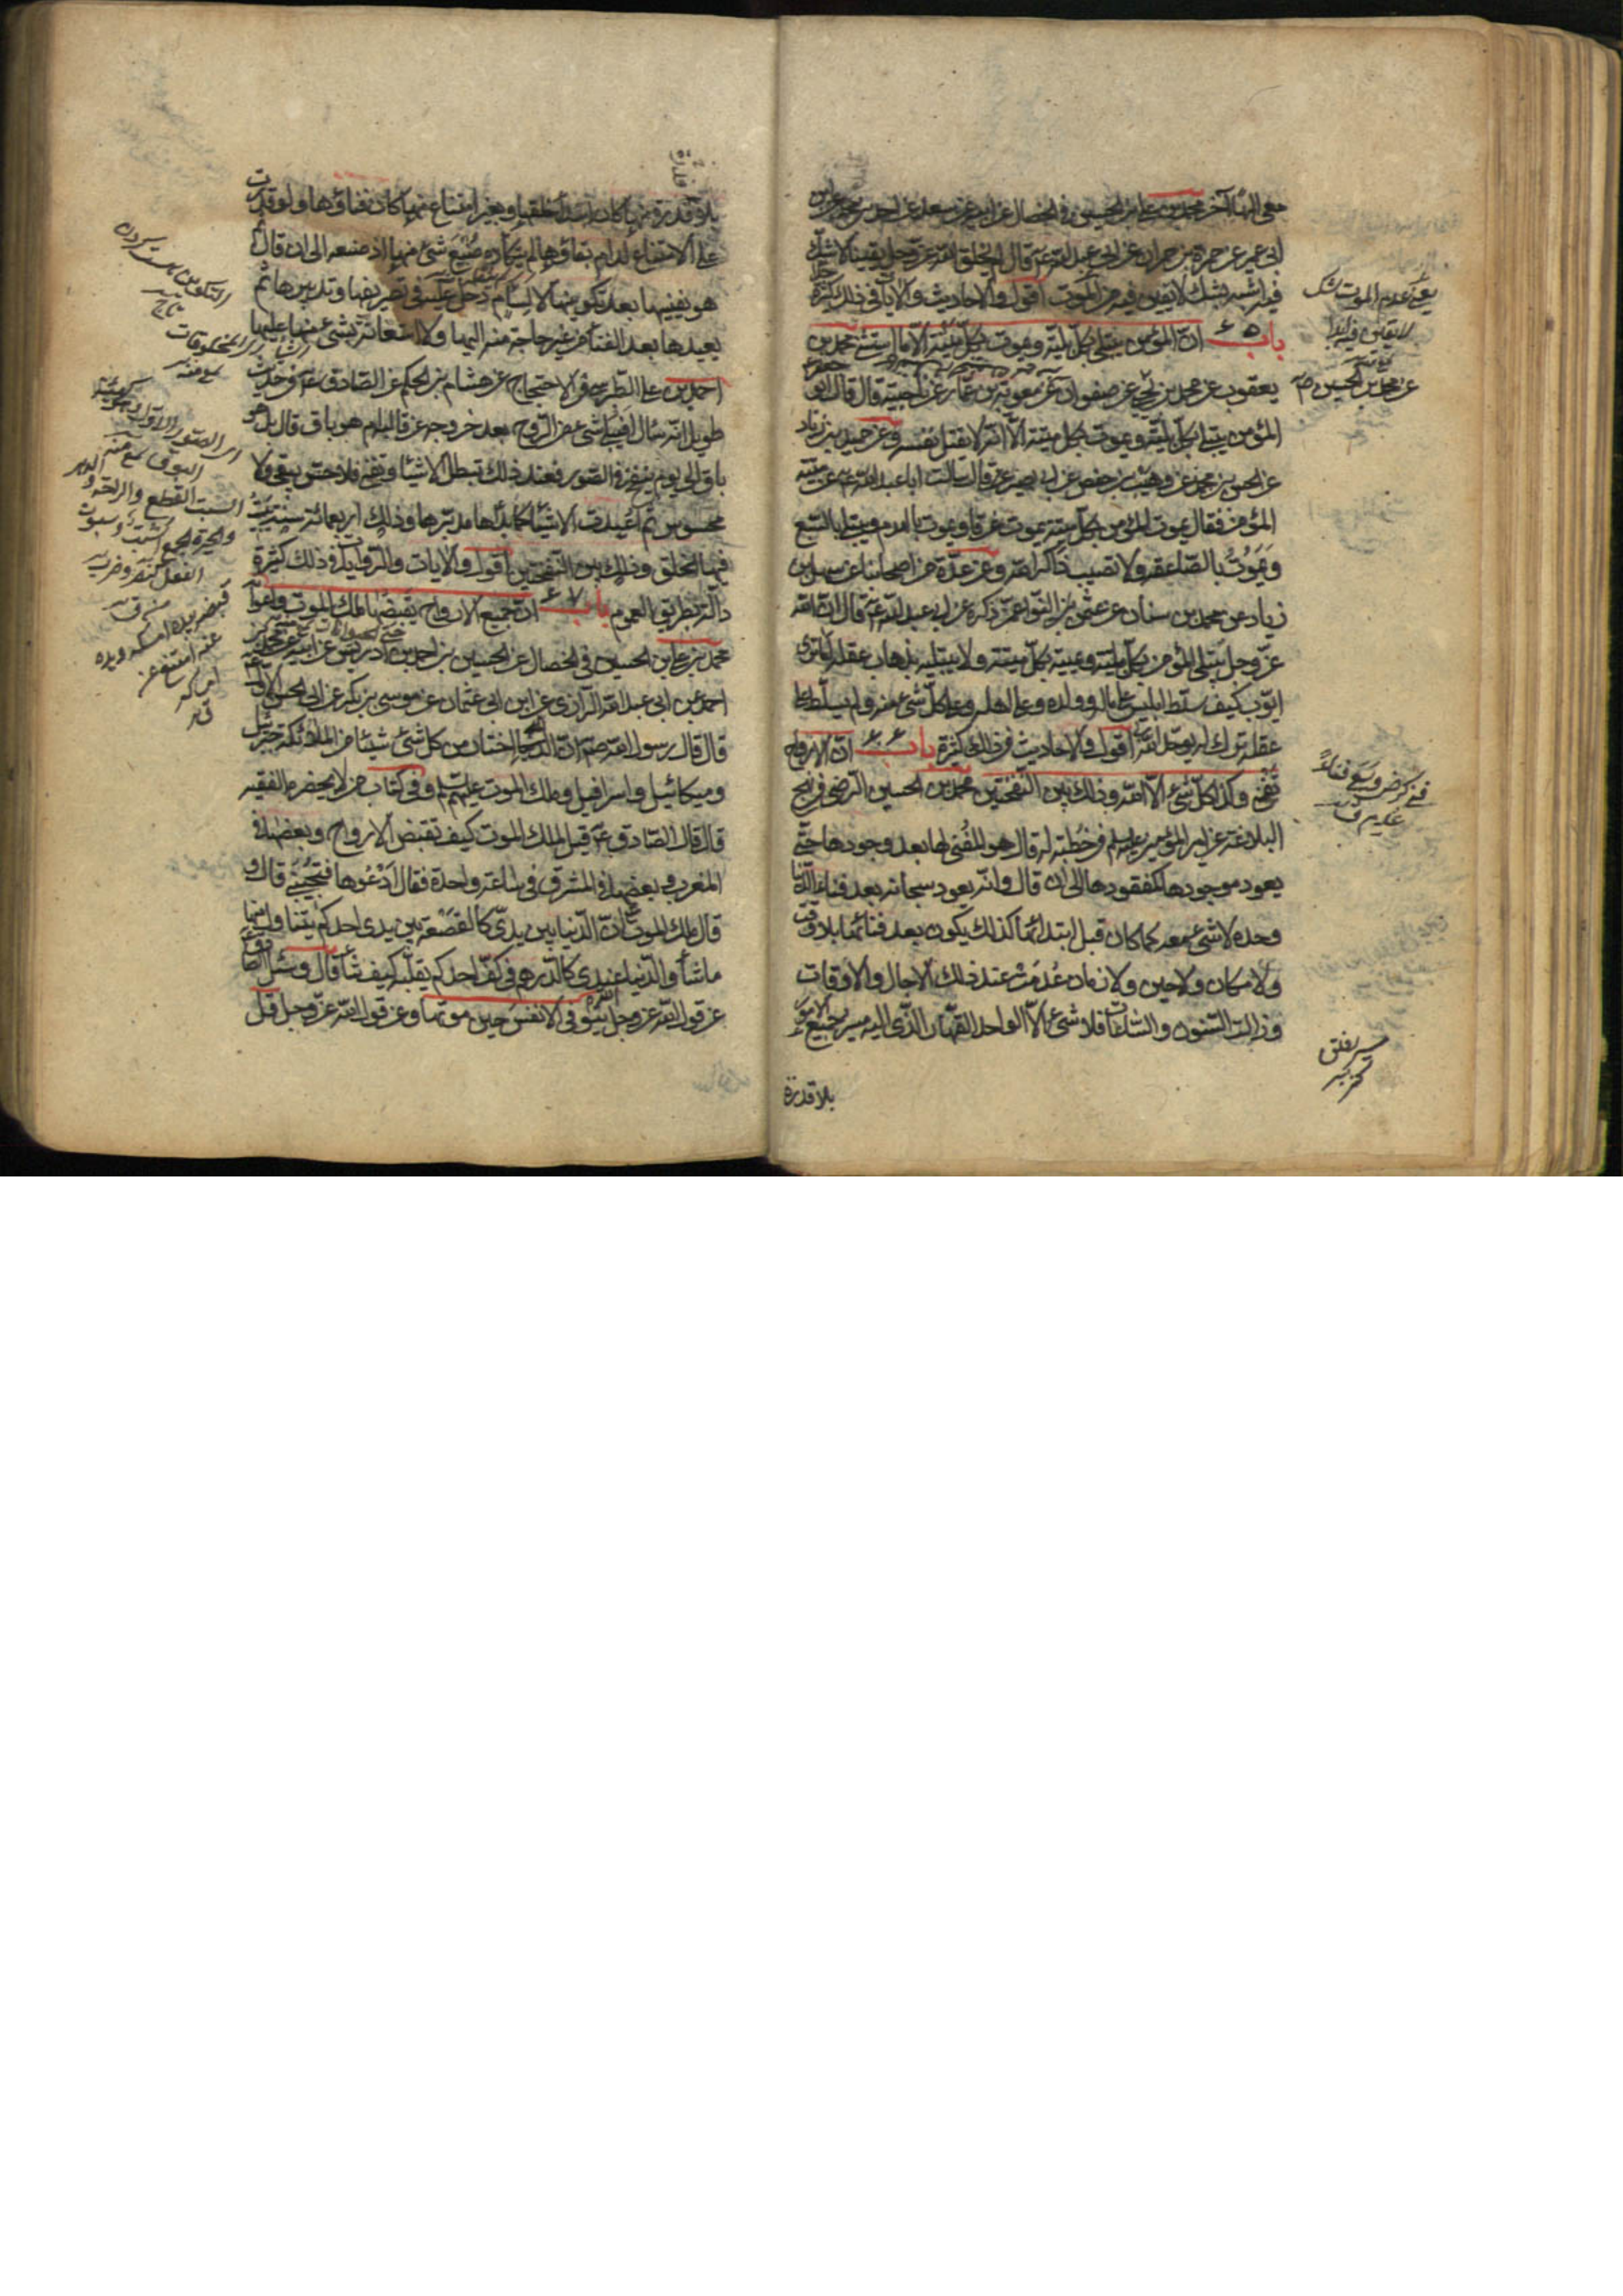 معي الها آخر محمد بن علي بن الحسين في الخصال عن ابيه عن سعد عن احمد بن محمد عن ابن
ابي عمير عن حمزة بن حمران عن ابي عبد الله ع قال لم يخلق الله عز وجل يقينا لا شك
فيه اشبه بشك لا يقين فيه من الموت اقول والاحاديث والآيات في ذلك كثيرة
باب ٦٥ ان المؤمن يبتلى بكل بلية ويموت بكل ميتة الا ما استثنى محمد بن
يعقوب عن محمد بن يحيى عن صفوان عن معوية بن عمار عن ناجية قال قال ابو جعفر
المؤمن يبتلى بكل بلية ويموت بكل ميتة الا انه لا يقتل نفسه وعن حميد بن زياد
عن الحسن بن محمد عن وهيب بن حفص عن ابي بصير قال سالت ابا عبد الله ع عن ميتة
المؤمن فقال يموت المؤمن بكل ميتة يموت غرقا ويموت بالهدم ويبتلى بالسبع
ويموت بالصاعقه ولا تصيب ذاكرا لله وعن عدة من اصحابنا عن سهل بن
زياد عن محمد بن سنان عن عثمن بن النوا عمن ذكره عن ابي عبد الله ع قال ان الله
عز وجل يبتلي المؤمن بكل بلية ويميته بكل ميتة ولا يبتليه بذهاب عقله اما ترى
ايوب كيف سلط ابليس على ماله وولده وعلى اهله وعلى كل شئ منه ولم يسلط على
عقله ترك له يوحد الله به اقول والاحاديث في ذلك كثيرة باب ٦٦ ان الارواح
تفنى وكذا كل شئ الا الله وذلك بين النفختين محمد بن الحسين الرضي في نهج
البلاغة عن امير المؤمنين عليه السلم في خطبة له قال هو المفني لها بعد وجودها حتى
يعود موجودها كمفقودها الى ان قال وانه يعود سبحانه بعد فناء الدنيا
وحده لا شئ معه كما كان قبل ابتدائها كذلك يكون بعد فنائها بلا وقت
ولا مكان ولا حين ولا زمان عدمت عند ذلك الاجال والاوقات
وزالت السنون والساعات فلا شئ الا الواحد القهار الذي اليه مصير جميع الامور
بلا قدرة
يعني عدم الموت شك
لا يقين فيه ابدا
منه
عن محمد بن الحسين صح
فني كرضي وسعى فناء
عدم ق
بلا قدرة منها كان ابتداء خلقها وبغير امتناع منها كان فناؤها ولو قدرت
على الامتناع لدام بقاؤها لم يتكاده صنع شئ منها اذ صنعه الى ان قال ثم
هو يفنيها بعد تكوينها لا لسام دخل عليه في تصريفها وتدبيرها ثم
يعيدها بعد الفناء من غير حاجة منه اليها ولا استعانة بشئ منها عليها
احمد بن علي الطبرسي في الاحتجاج عن هشام بن الحكم عن الصادق ع في حديث
طويل انه سال افيتلاشى الروح بعد خروجه عن قالبه ام هو باق قال بل هو
باق الى يوم ينفخ في الصور فعند ذلك تبطل الاشيا وتفنى فلا حس يبقى ولا
محسوس ثم اعيدت الاشيا كما بدأها مدبرها وذلك اربعمائة سنة يسبت
فيها الخلق وذلك بين النفختين اقول والايات والروايات في ذلك كثيرة
دالة بطريق العموم باب ٦٧ ان جميع الارواح يقبضها ملك الموت واعوانه
محمد بن علي بن الحسين في الخصال عن الحسين بن احمد بن ادريس عن ابيه عن محمد بن
احمد عن ابي عبد الله الرازي عن ابن ابي عثمان عن موسى بن بكر عن ابي الحسن الاول ع
قال قال رسول الله ص ان الله اختار من كل شئ شيئا من الملائكة جبرئيل
وميكائيل واسرافيل وملك الموت عليهم السلم وفي كتاب من لا يحضره الفقيه
قال قال الصادق ع قيل لملك الموت كيف تقبض الارواح وبعضها في
المغرب وبعضها في المشرق في ساعة واحدة فقال ادعوها فتجيبني قال و
قال ملك الموت ع ان الدنيا بين يدي كالقصعة بين يدي احدكم يتناول منها
ما شاء والدنيا عندي كالدرهم في كف احدكم يقلبه كيف شاء قال وسئل الصادق ع
عن قول الله عز وجل الله يتوفى الانفس حين موتها وعن قول الله عز وجل قل
السبت القطع والراحة و الدهر
والحيرة
الفعل كنصر وضرب
قبضه بيده امسكه وبيده
عنه امتنع عن
امساكه
ق